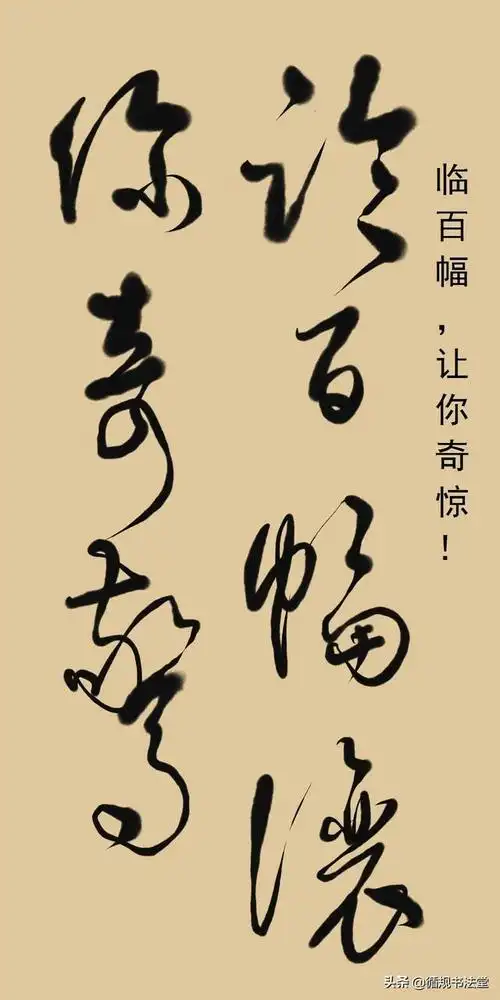 临百幅，让你奇惊！
臨百幅讓
你奇驚
头条 @循规书法堂